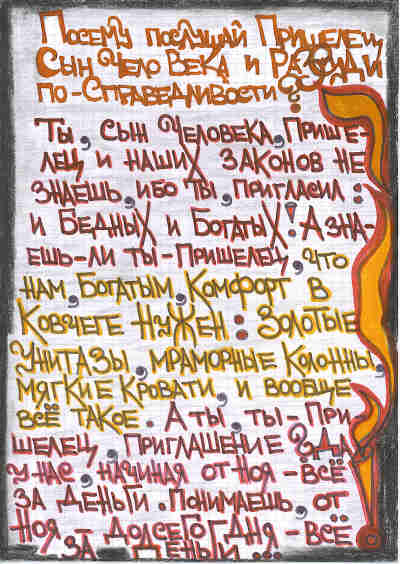 Посему послушай Пришелец,
Сын Чело Века и Рассуди
по-Справедливости:
Ты, сын Человека, Прише-
лец и наших законов не
знаешь, ибо ты, пригласил:
и Бедных и Богатых! А зна-
ешь-ли ты-Пришелец, что
нам, Богатым, Комфорт в
Ковчеге Нужен: Золотые
Унитазы, мраморные Колонны,
мягкие Кровати, и вообще
всё такое. А ты, ты-При-
шелец, Приглашение
у нас, начиная от Ноя-всё
за деньги. Понимаешь, от
Ноя-до Сего Дня-всё
за деньги...